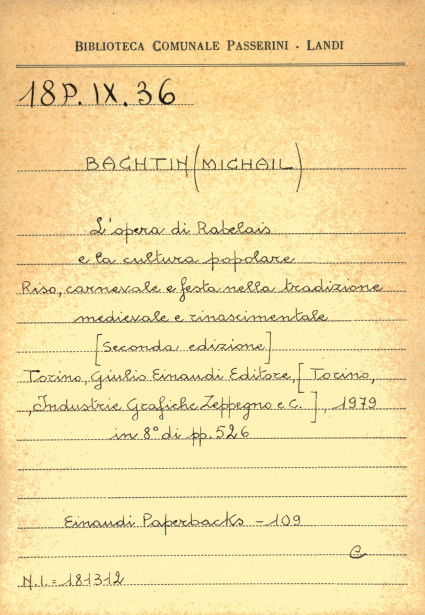 BIBLIOTECA COMUNALE PASSERINI - LANDI
18P. IX. 36
BACHTIN (MICHAIL)
L'opera di Rabelais
e la cultura popolare
Riso, carnevale e festa nella tradizione
medievale e rinascimentale
[Seconda edizione]
Torino, Giulio Einaudi Editore, [Torino,
Industrie Grafiche Zeppegno e C.], 1979
in 8° di pp. 526
Einaudi Paperbacks - 109
C
N.I. = 181312